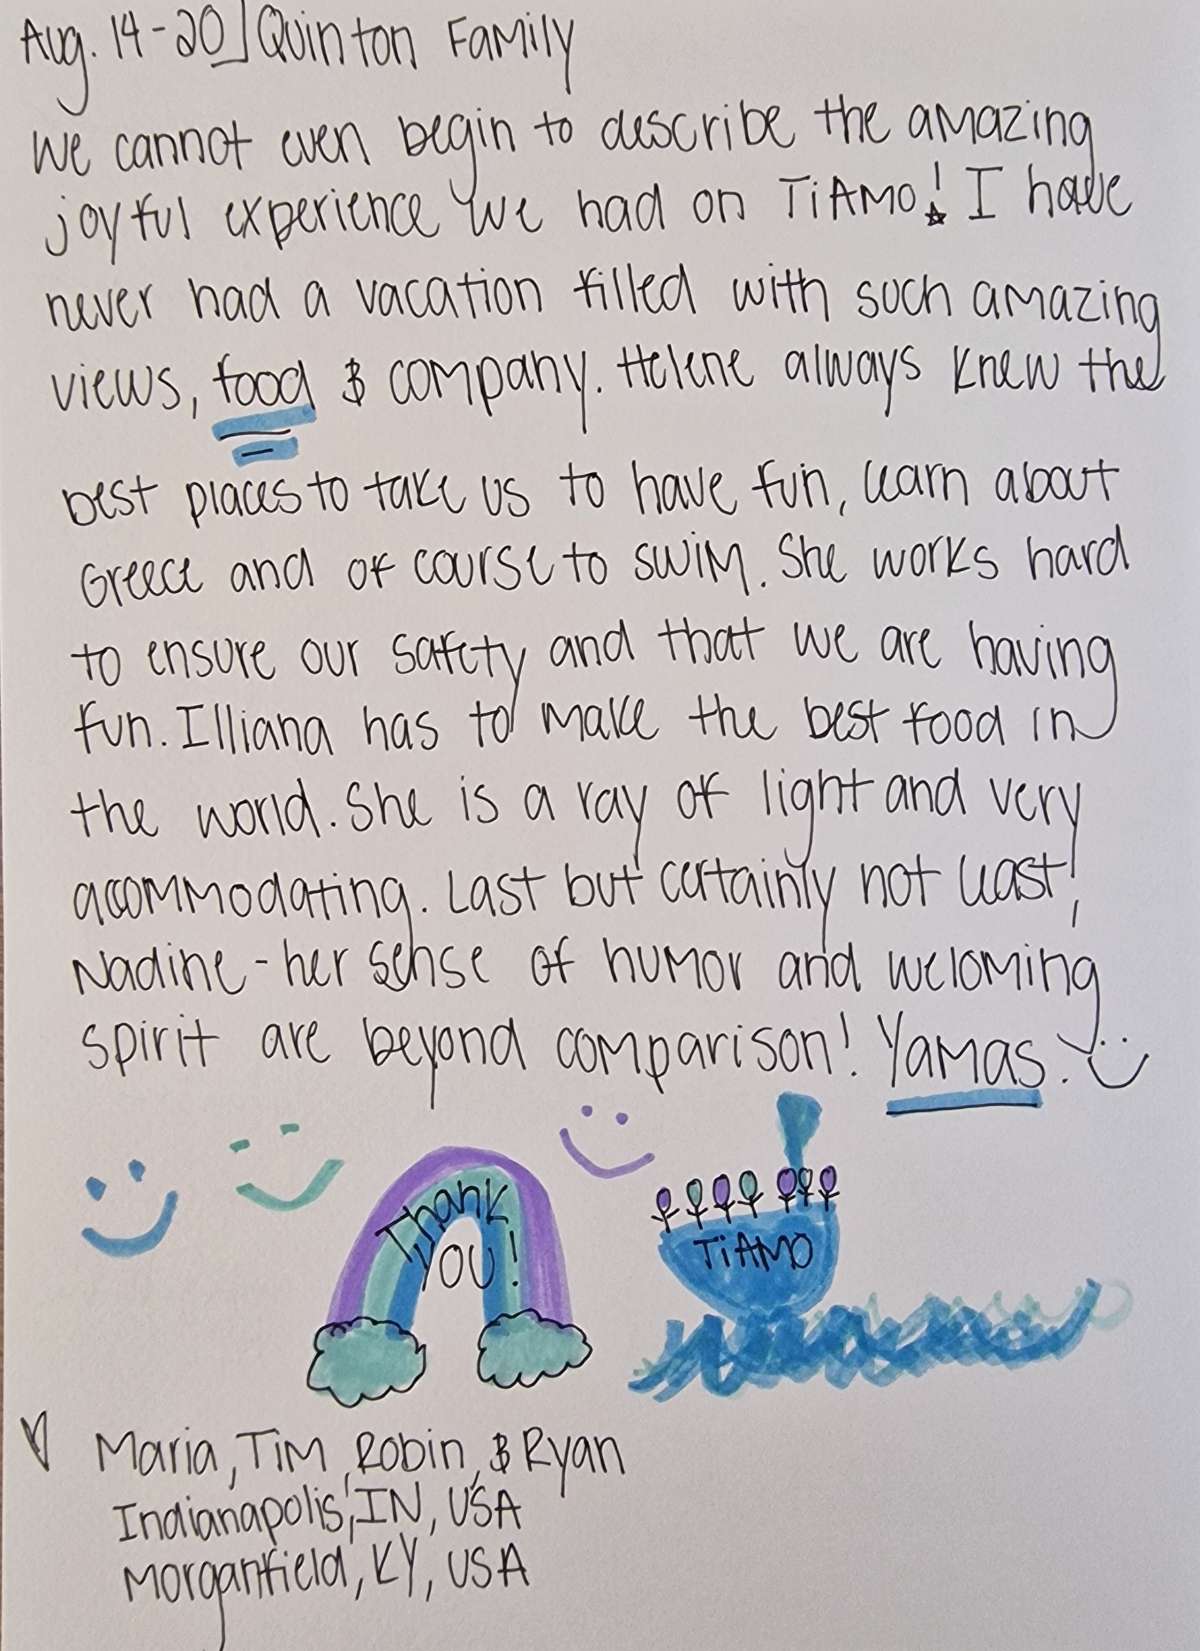 Aug. 14-20 | Quinton Family
We cannot even begin to describe the amazing
joyful experience we had on TiAMO! I have
never had a vacation filled with such amazing
views, food & company. Helene always knew the
best places to take us to have fun, learn about
Greece and of course to swim. She works hard
to ensure our safety and that we are having
fun. Illiana has to make the best food in
the world. She is a ray of light and very
accommodating. Last but certainly not least,
Nadine - her sense of humor and weloming
spirit are beyond comparison! Yamas!
Thank
YOU!
TiAMO
Maria, Tim, Robin, & Ryan
Indianapolis, IN, USA
Morganfield, KY, USA